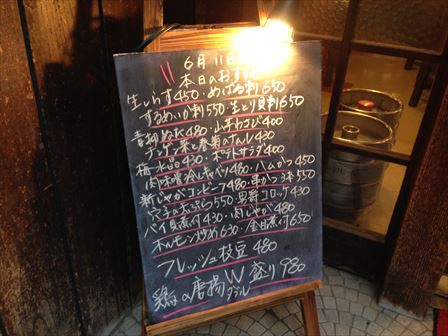 6月11日
本日のおすすめ
生しらす450・めばる刺650
するめいか刺550・生とり貝刺650
青柳ぬた480・山芋わさび400
チンゲン菜と春菊のナムル430
梅水晶430・ポテトサラダ400
肉味噌冷しキャベツ480・ハムかつ450
新じゃがコンビーフ480・串かつ3本550
穴子の天ぷら550・男爵コロッケ430
バイ貝煮付430・肉じゃが480
ホルモン炒め630・金目煮付650
フレッシュ枝豆480
鶏の唐揚W盛り980
ダブル